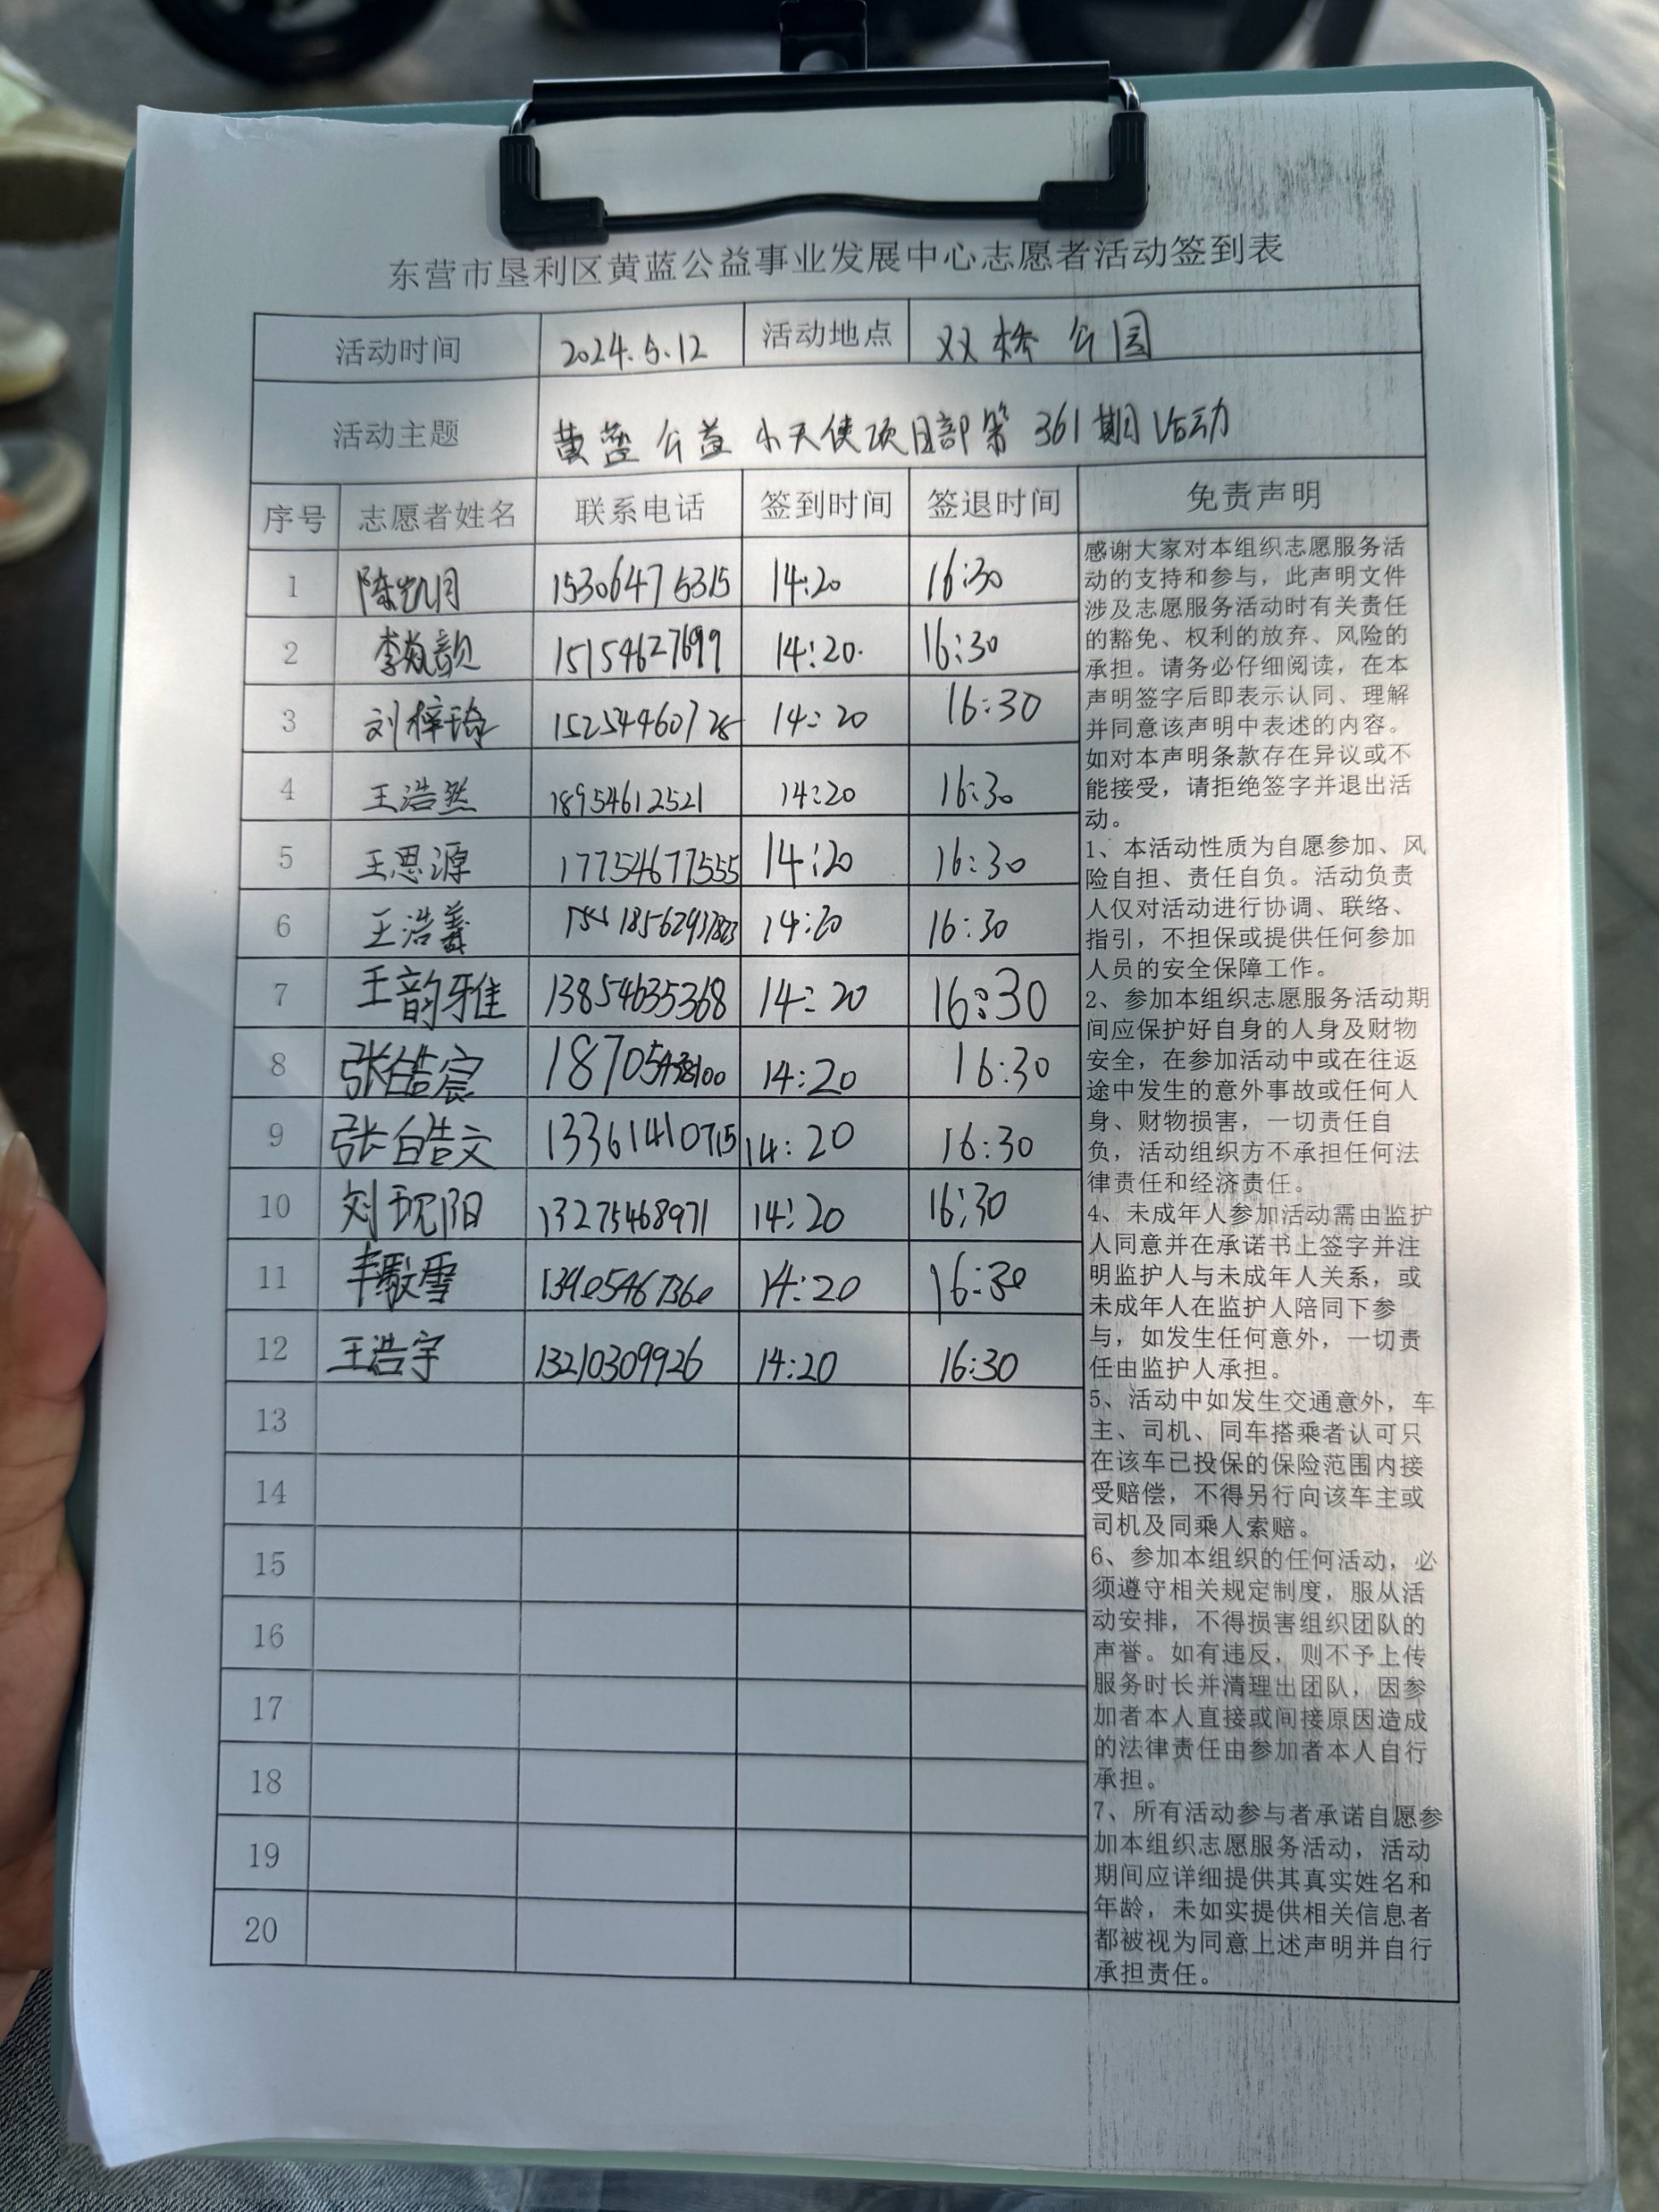 东营市垦利区黄蓝公益事业发展中心志愿者活动签到表
活动时间 2024.5.12 活动地点 双桥公园
活动主题 黄蓝公益小天使项目部第361期活动
序号 志愿者姓名 联系电话 签到时间 签退时间 免责声明
1 陈凯月 15306475315 14:20 16:30
2 15154627699 14:20. 16:30
3 刘梓琦 14:20 16:30
4 王浩然 18954612521 14:20 16:30
5 王思源 17754677555 14:20 16:30
6 王浩義 14:20 16:30
7 王韵雅 13854635368 14:20 16:30
8 张皓宸 14:20 16:30
9 张皓文 13361410715 14:20 16:30
10 刘玧阳 13275468971 14:20 16:30
11 13405467360 14:20 16:30
12 王浩宇 13210309926 14:20 16:30
13
14
15
16
17
18
19
20
感谢大家对本组织志愿服务活
动的支持和参与，此声明文件
涉及志愿服务活动时有关责任
的豁免、权利的放弃、风险的
承担。请务必仔细阅读，在本
声明签字后即表示认同、理解
并同意该声明中表述的内容。
如对本声明条款存在异议或不
能接受，请拒绝签字并退出活
动。
1、本活动性质为自愿参加、风
险自担、责任自负。活动负责
人仅对活动进行协调、联络、
指引，不担保或提供任何参加
人员的安全保障工作。
2、参加本组织志愿服务活动期
间应保护好自身的人身及财物
安全，在参加活动中或在往返
途中发生的意外事故或任何人
身、财物损害，一切责任自
负，活动组织方不承担任何法
律责任和经济责任。
4、未成年人参加活动需由监护
人同意并在承诺书上签字并注
明监护人与未成年人关系，或
未成年人在监护人陪同下参
与，如发生任何意外，一切责
任由监护人承担。
5、活动中如发生交通意外，车
主、司机、同车搭乘者认可只
在该车已投保的保险范围内接
受赔偿，不得另行向该车主或
司机及同乘人索赔。
6、参加本组织的任何活动，必
须遵守相关规定制度，服从活
动安排，不得损害组织团队的
声誉。如有违反，则不予上传
服务时长并清理出团队，因参
加者本人直接或间接原因造成
的法律责任由参加者本人自行
承担。
7、所有活动参与者承诺自愿参
加本组织志愿服务活动，活动
期间应详细提供其真实姓名和
年龄，未如实提供相关信息者
都被视为同意上述声明并自行
承担责任。